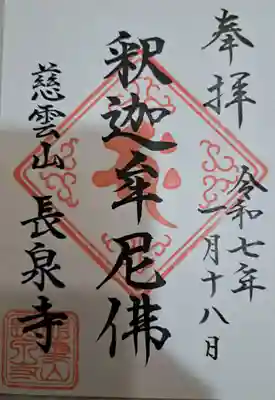 奉拝
令和七年
一月十八日
釈迦牟尼佛
慈雲山 長泉寺